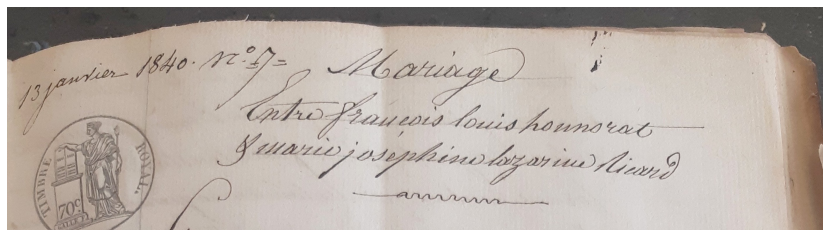 13 janvier 1840. n.° 7 = Mariage
Entre françois louis honnorat
& marie joséphine lazarine Ricard
TIMBRE ROYAL
70c